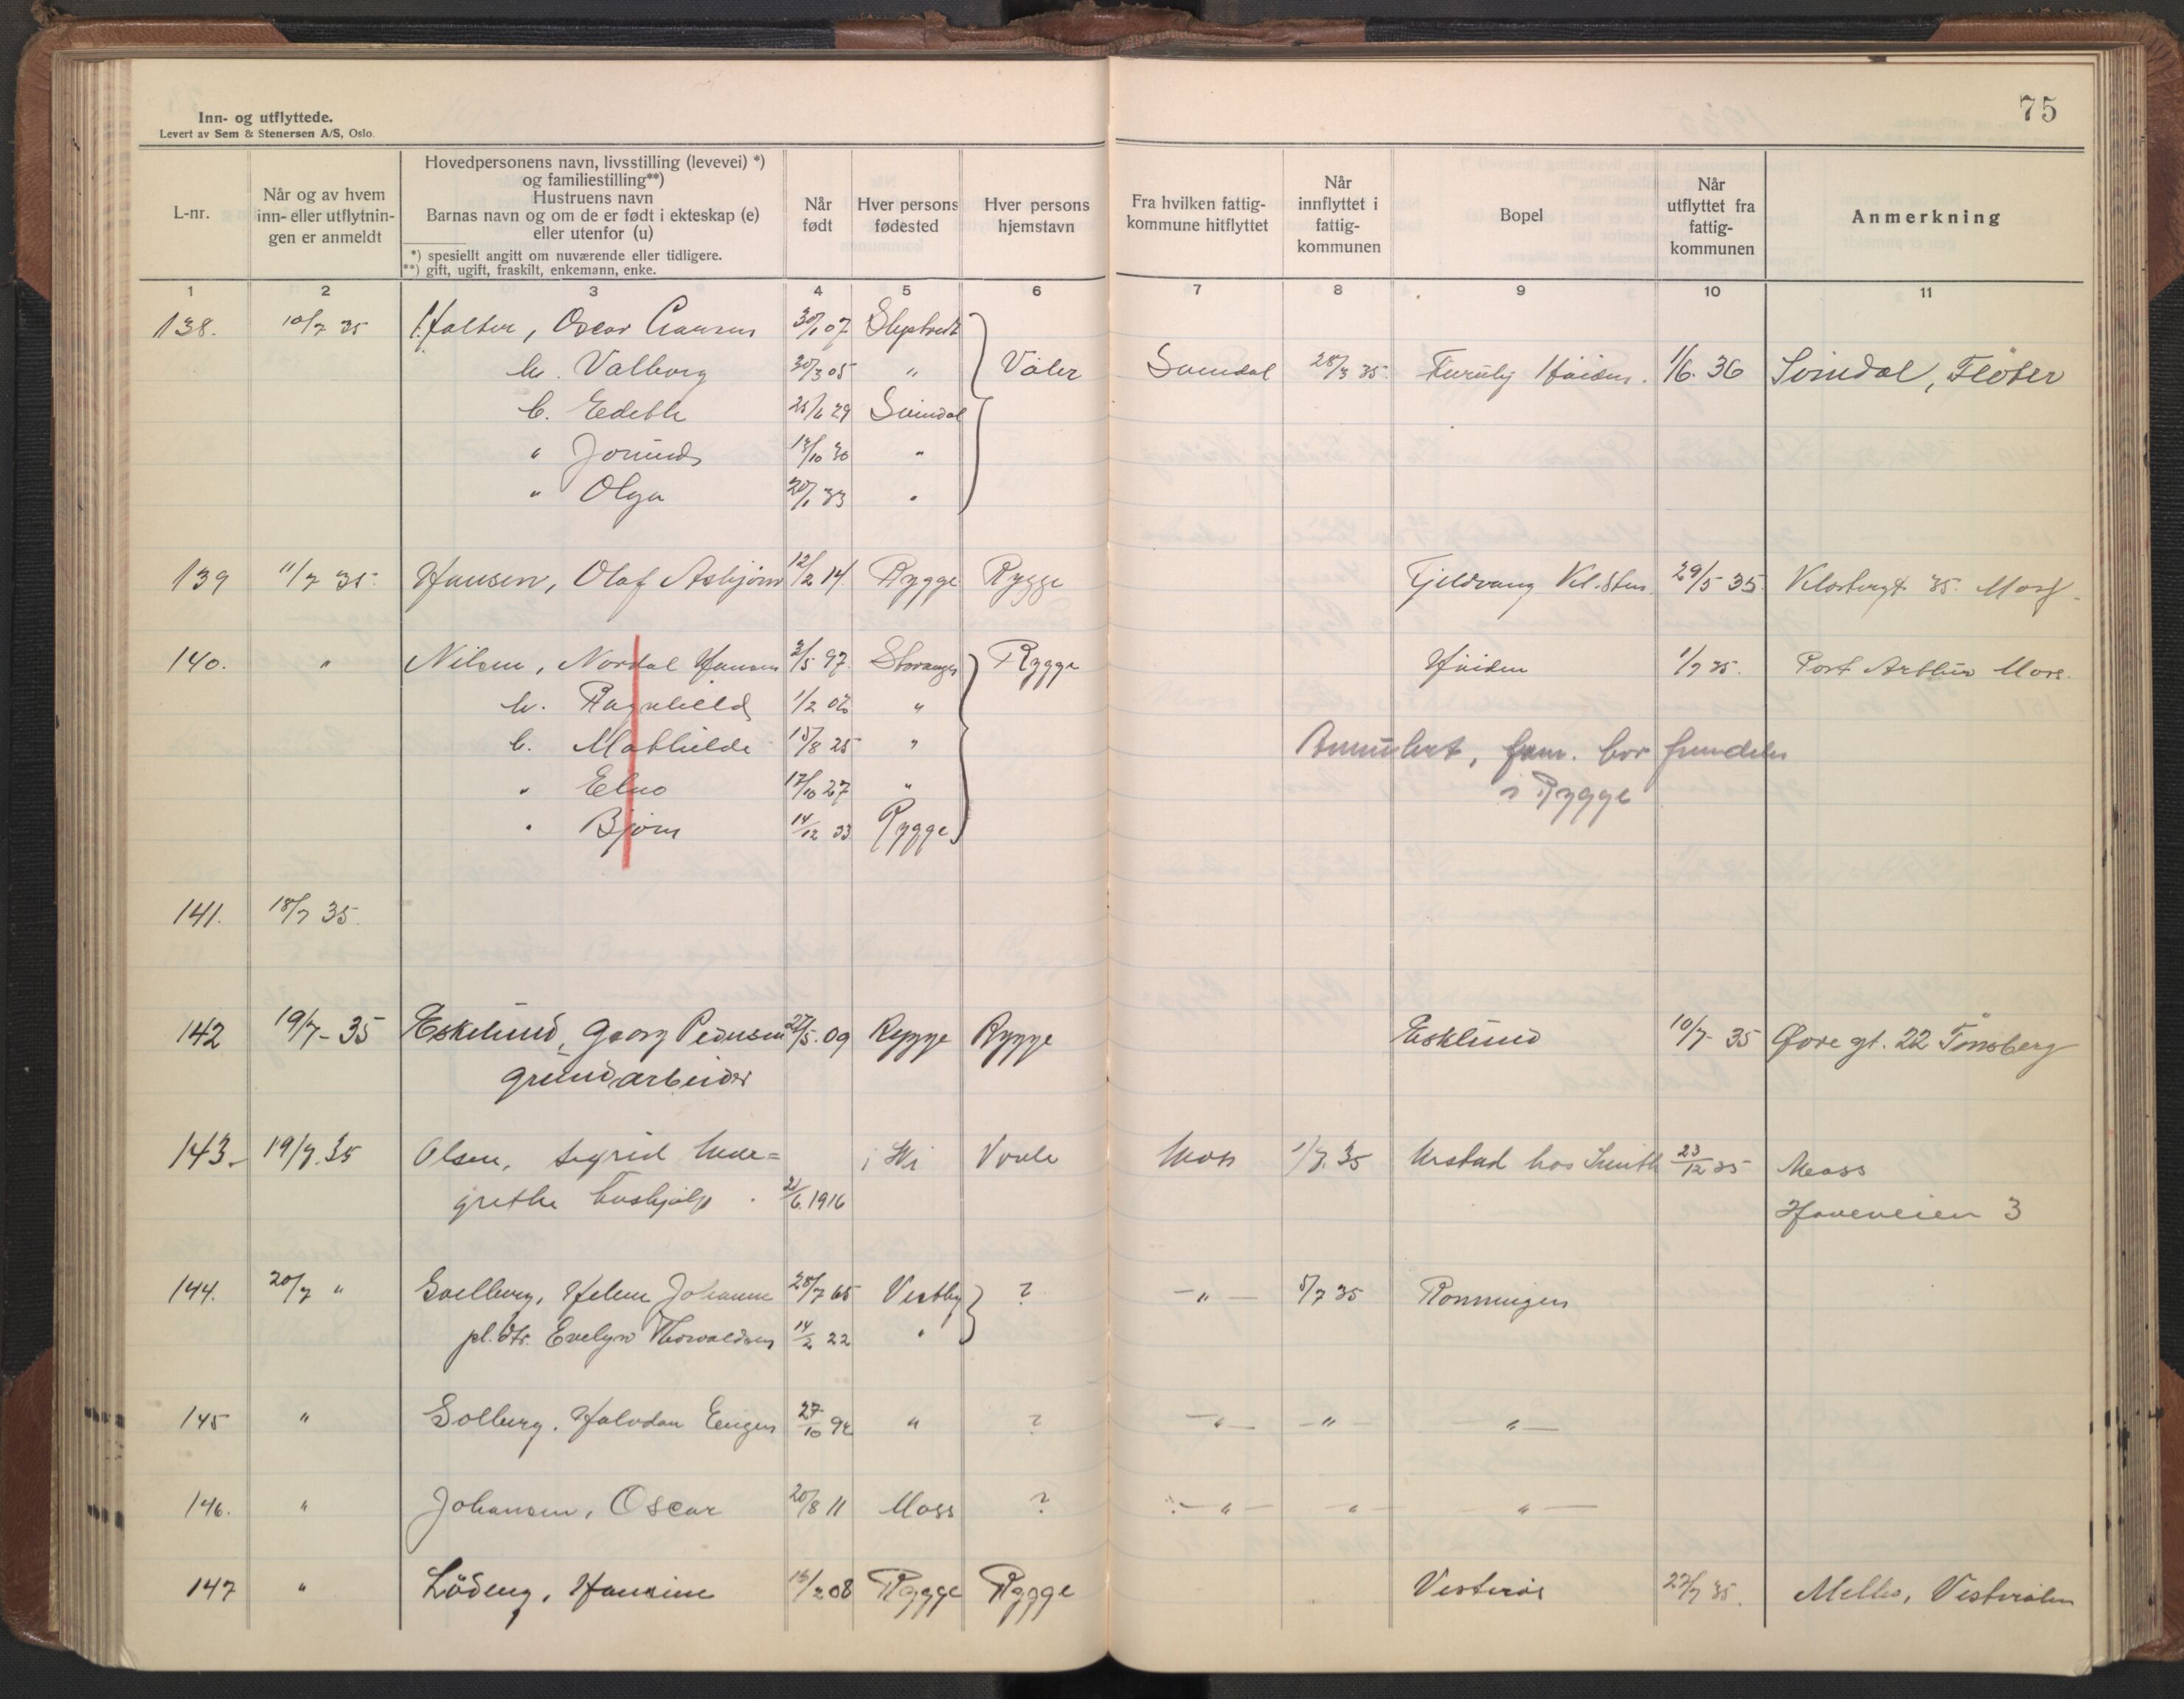 75
Inn- og utflyttede.
Levert av Sem & Stenersen A/S, Oslo.
L-nr.
Når og av hvem inn- eller utflytnin-gen er anmeldt
Hovedpersonens navn, livsstilling (levevei) *)
og familiestilling**)
Hustruens navn
Barnas navn og om de er født i ekteskap (e)
eller utenfor (u)
*) spesiellt angitt om nuværende eller tidligere.
**) gift, ugift, fraskilt, enkemann, enke.
Når født
Hver persons fødested
Hver persons hjemstavn
Fra hvilken fattig-kommune hitflyttet
Når innflyttet i fattig-kommunen
Bopel
Når utflyttet fra fattig-kommunen
Anmerkning
1 2 3 4 5 6 7 8 9 10 11
138. 10/7 35 Halter, Oscar 30/1 07
h. Valborg 30/3 05 " Våler Svindal 28/3 35 Furuly Høiden. 1/6. 36 Svindal, Fløter
b. Edith 25/6 29 Svindal
" Jorund 13/10 30 "
" Olga 20/1 33 "
139 11/7 35. Hansen, Olaf Asbjørn 12/2 14. Rygge Rygge Fjeldvang 29/5 35. 35. Moss.
140. " Nilsen, Nordal Hansen 3/5 97. Stavanger Rygge Høiden 1/7 35. Port Arthur Moss.
h. Ragnhild 1/2 02 "
b. Mathilde 15/8 25 " Annulert, fam. bor fremdeles
" Elno 17/10 27 " i Rygge
" Bjørn 14/12 33 Rygge
141. 18/7 35.
142 19/7-35 Eskelund, Georg Pedersen 27/5. 09 Rygge Rygge Esklund 10/7- 35 Øvre gt. 22 Tønsberg
grundarbeider
143- 19/7. 35 Olsen, Sigrid Mar= i Wi Vaale Moss 1/7. 35 Urstad hos Smith 23/12 35 Moss
grethe hushjelp. 21/6. 1916 Haveveien 3
144. 20/7 " Solberg, Helene Johanne 28/7 65 Vestby ? -"- 5/7 35 Rønningen
pl.dtr. Evelyn Thorvaldsen 14/2 22 "
145 " Solberg, Halvdan Eugen 27/10 92 " ? -"- -"- "-
146. " Johansen, Oscar 20/8 11 Moss ? -"- "- "-
147 " Lödeng, Hansine 13/2 08 Rygge Rygge Vesterøi 22/7 35. Melbo, Vesterålen